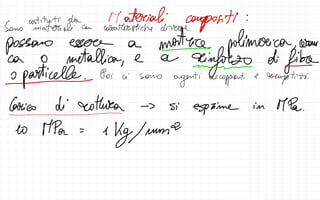 Materiali compositi:
costituiti da
Sono materiali con caratteristiche diverse
possono essere a matrice polimerica, cerami
ca o metallica, e a rinforzo di fibra
o particelle. Poi ci sono agenti accoppianti e
Carico di rottura → si esprime in MPa.
10 MPa = 1 Kg/mm²